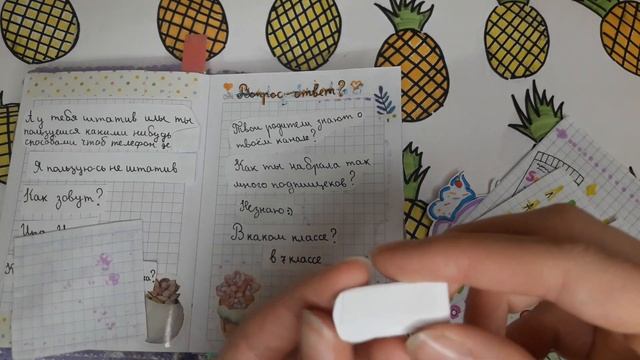 А у тебя штатив или ты
пользуешся какими нибудь
способами чтоб телефон де
Я пользуюсь не штатив
Как зовут?
Вопрос-ответ?
Твои родители знают о
твоём канале?
Как ты набрала так
много подпищеков?
Незнаю:)
В каком классе?
в 7 классе